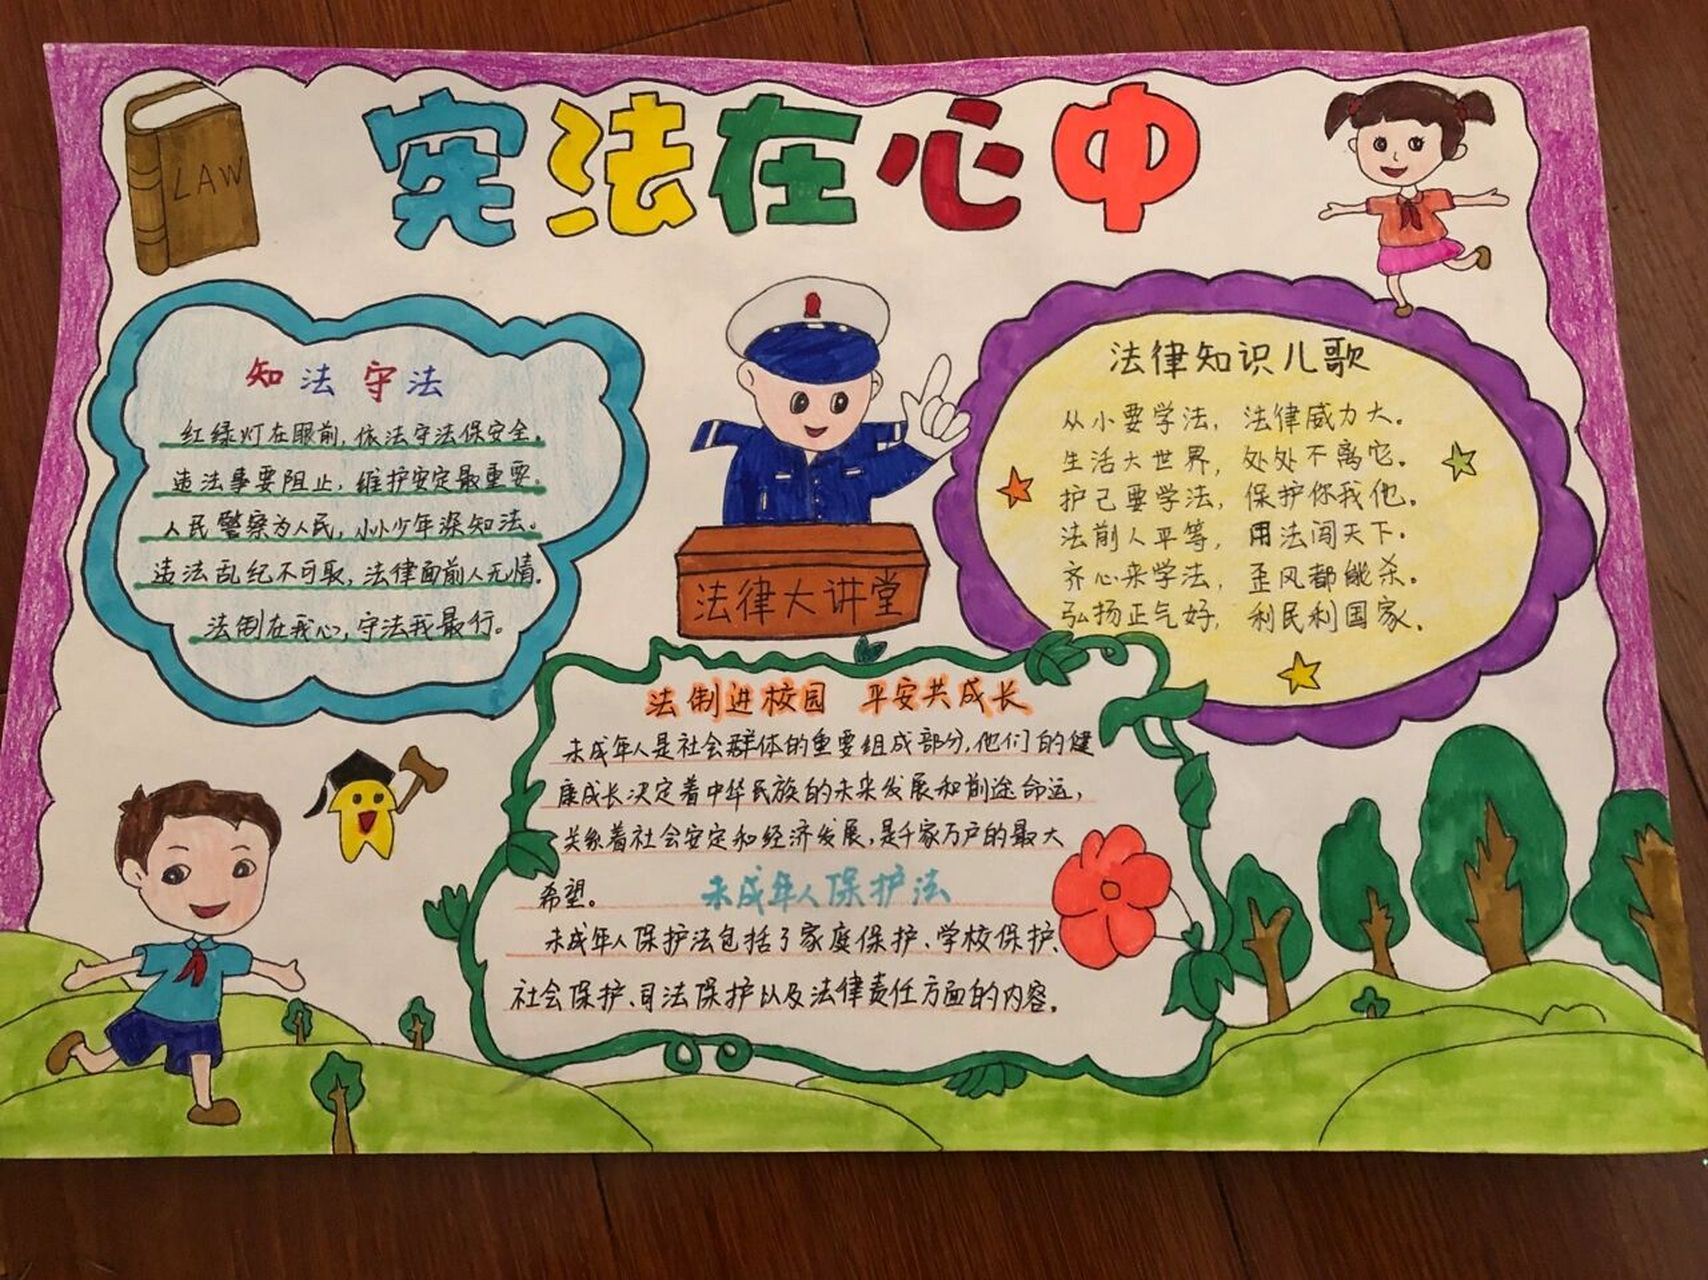 宪法在心中
LAW
知法守法
红绿灯在眼前,依法守法保安全。
违法事要阻止,维护安定最重要。
人民警察为人民,小小少年深知法。
违法乱纪不可取,法律面前人无情。
法制在我心,守法我最行。
法律大讲堂
法律知识儿歌
从小要学法,法律威力大。
生活大世界,处处不离它。
护己要学法,保护你我他。
法前人平等,用法闯天下。
齐心来学法,歪风都能杀。
弘扬正气好,利民利国家。
法制进校园 平安共成长
未成年人是社会群体的重要组成部分,他们的健
康成长决定着中华民族的未来发展和前途命运,
关系着社会安定和经济发展,是千家万户的最大
希望。
未成年人保护法
未成年人保护法包括了家庭保护、学校保护、
社会保护、司法保护以及法律责任方面的内容。